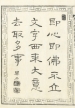 即心即佛不立
文字西來大意
去取多事